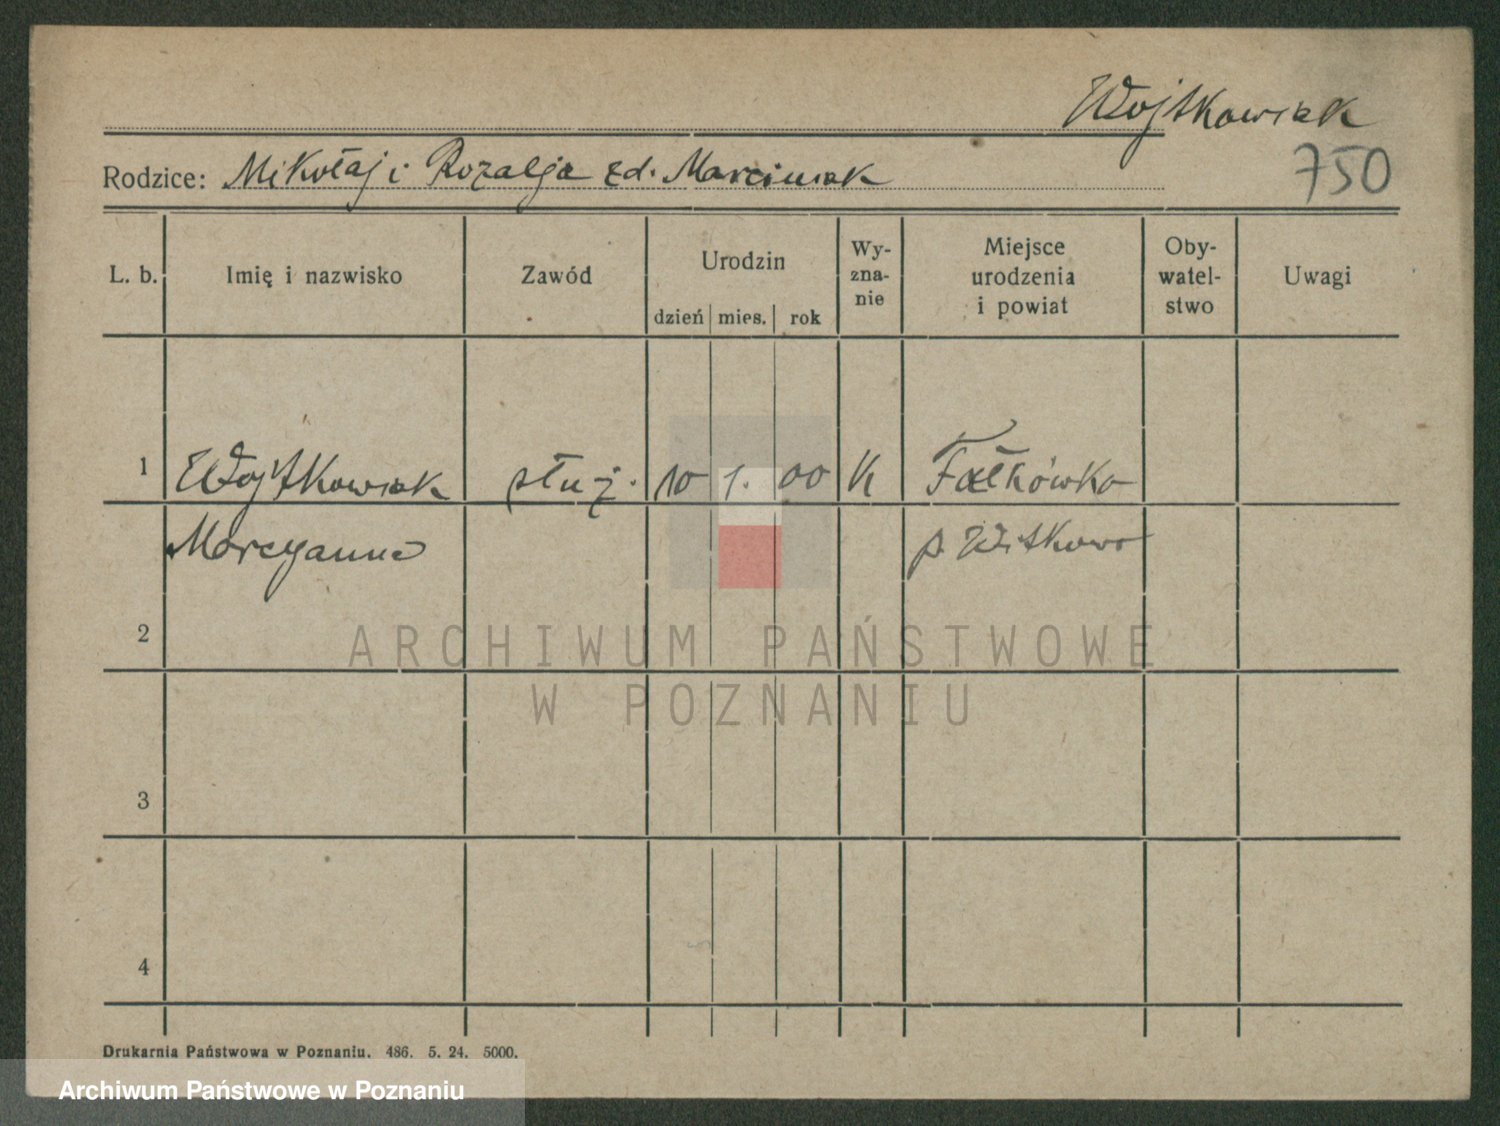 Wojtkowiak
Rodzice: Mikołaj i Rozalja zd. Marciniak
750
L. b. Imię i nazwisko Zawód Urodzin dzień mies. rok Wy-zna-nie Miejsce urodzenia i powiat Oby-watel-stwo Uwagi
1 Wojtkowiak służ. 10 1. 00 K Fałkówko
Marcyanna p. Witkowo
2
ARCHIWUM PAŃSTWOWE
W POZNANIU
3
4
Drukarnia Państwowa w Poznaniu. 486. 5. 24. 5000.
Archiwum Państwowe w Poznaniu